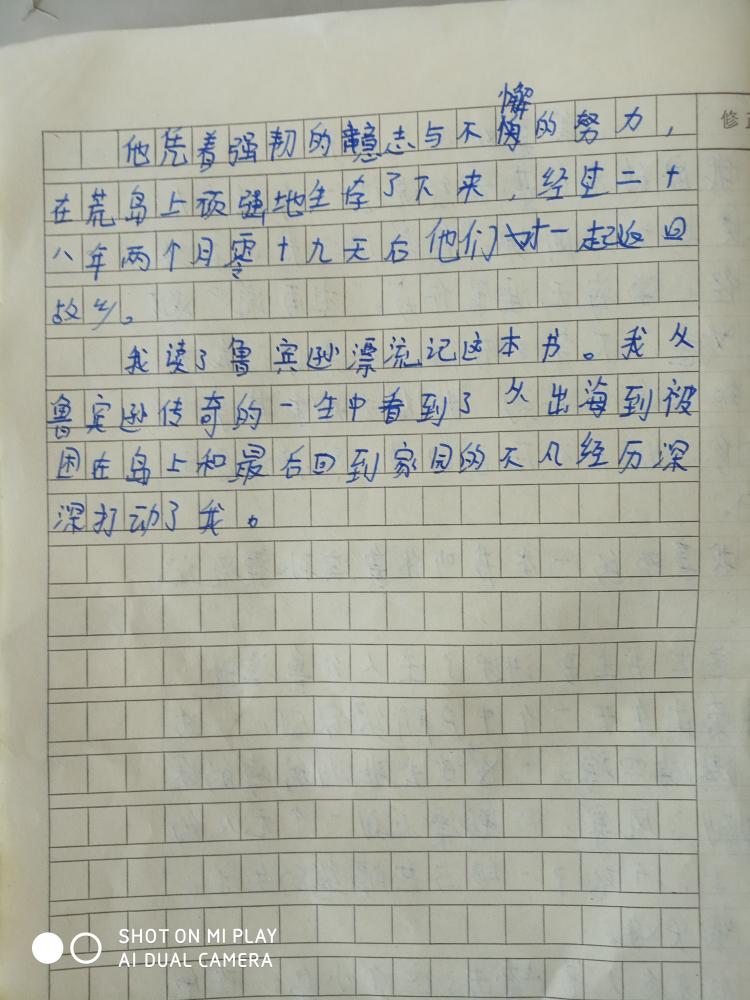 懈
他凭着强韧的意志与不懈的努力，
修
在荒岛上顽强地生存了下来，经过二十
八年两个月零十九天后他们一起返回
故乡。
我读了鲁宾逊漂流记这本书。我从
鲁宾逊传奇的一生中看到了从出海到被
困在岛上和最后回到家园的不凡经历深
深打动了我。
SHOT ON MI PLAY
AI DUAL CAMERA